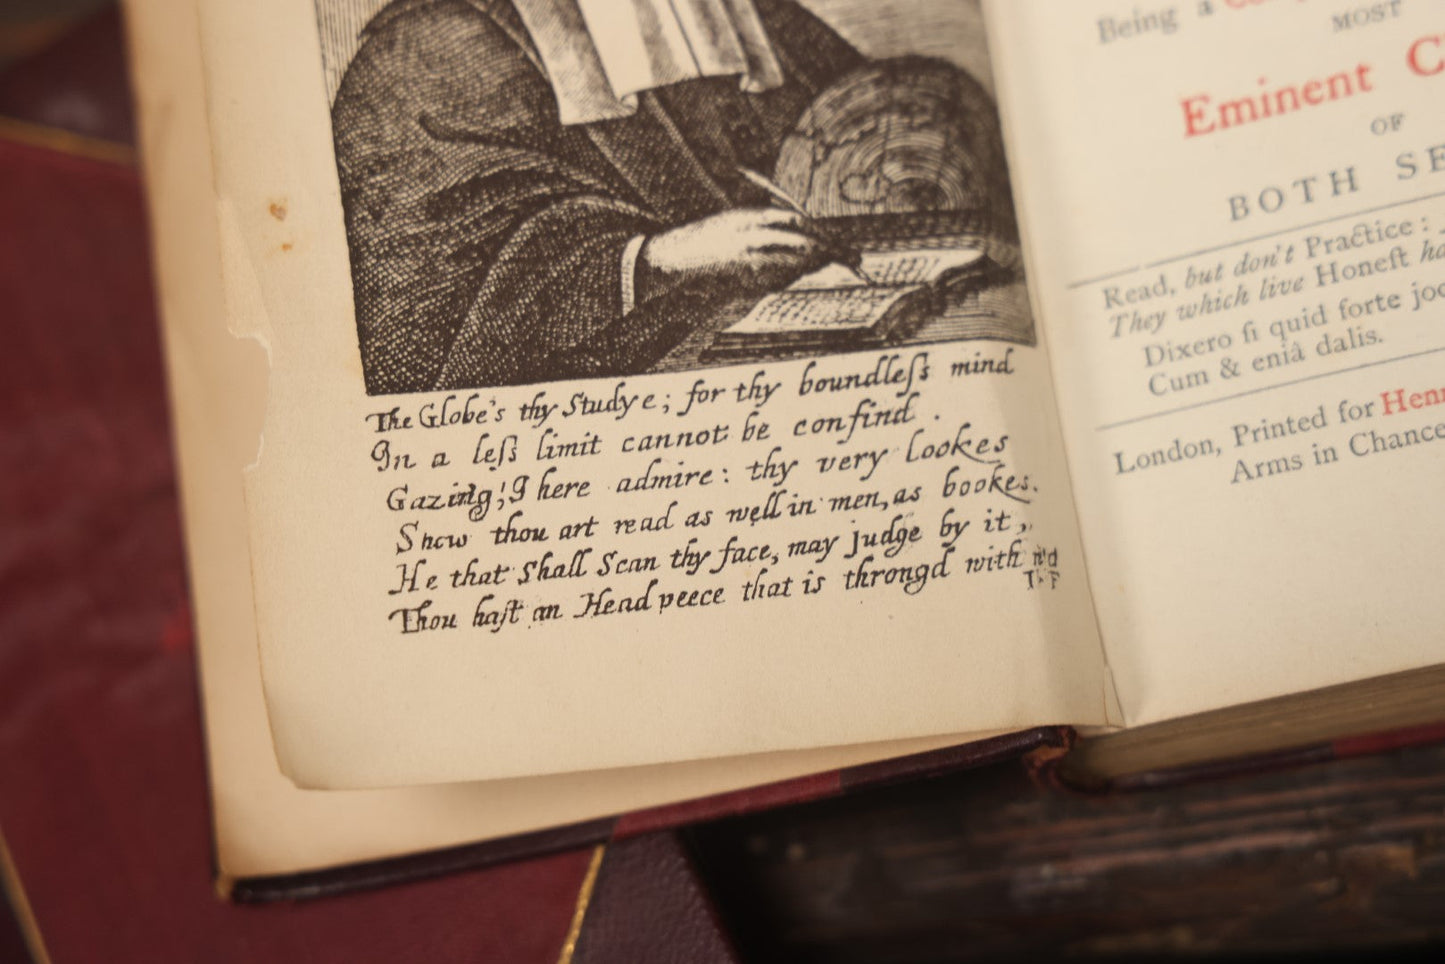 The Globe's thy Studye; for thy boundleſs mind
In a leſs limit cannot be confind.
Gazing; I here admire: thy very lookes
Shew thou art read as well in men, as bookes.
He that Shall Scan thy face, may judge by it,
Thou haſt an Head peece that is throngd with
Being a
MOST
Eminent C
OF
BOTH SE
Read, but don't Practice:
They which live Honeſt
Dixero ſi quid forte joc
Cum & eniâ dalis.
London, Printed for Henr
Arms in Chance